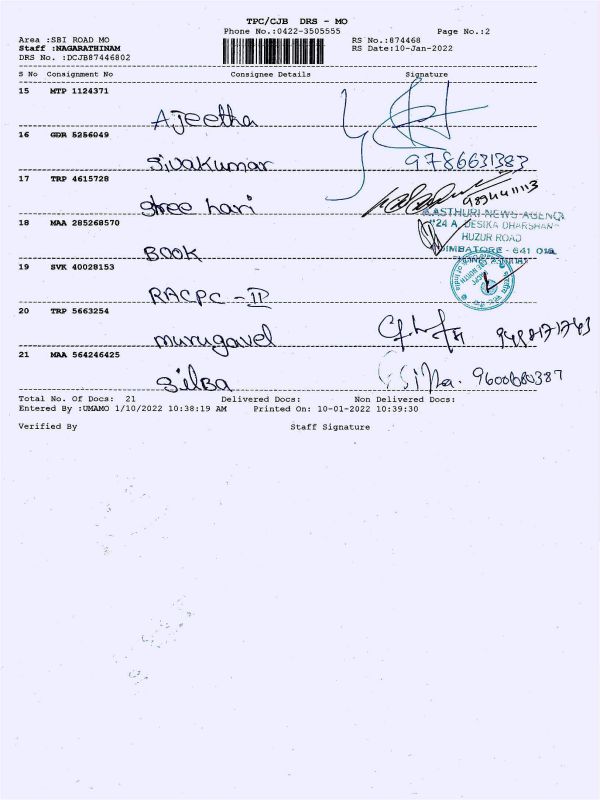 TPC/CJB DRS - MO
Phone No.:0422-3505555 Page No.:2
Area :SBI ROAD MO RS No.:874468
Staff :NAGARATHINAM RS Date:10-Jan-2022
DRS No. :DCJB87446802
S No Consignment No Consignee Details Signature
15 MTP 1124371
Ajeetha
16 GDR 5256049
Sivakumar 9786631383
17 TRP 4615728
Shree hari 9894411113
18 MAA 285268570
KASTHURI NEWS AGENCY
"24 A, DESIKA DHARSHAN"
HUZUR ROAD
COIMBATORE - 641 018
BOOK
19 SVK 40028153
RACPC - II
20 TRP 5663254
Murugavel
21 MAA 564246425
Silba 9600680387
Total No. Of Docs: 21 Delivered Docs: Non Delivered Docs:
Entered By :UMAMO 1/10/2022 10:38:19 AM Printed On: 10-01-2022 10:39:30
Verified By Staff Signature